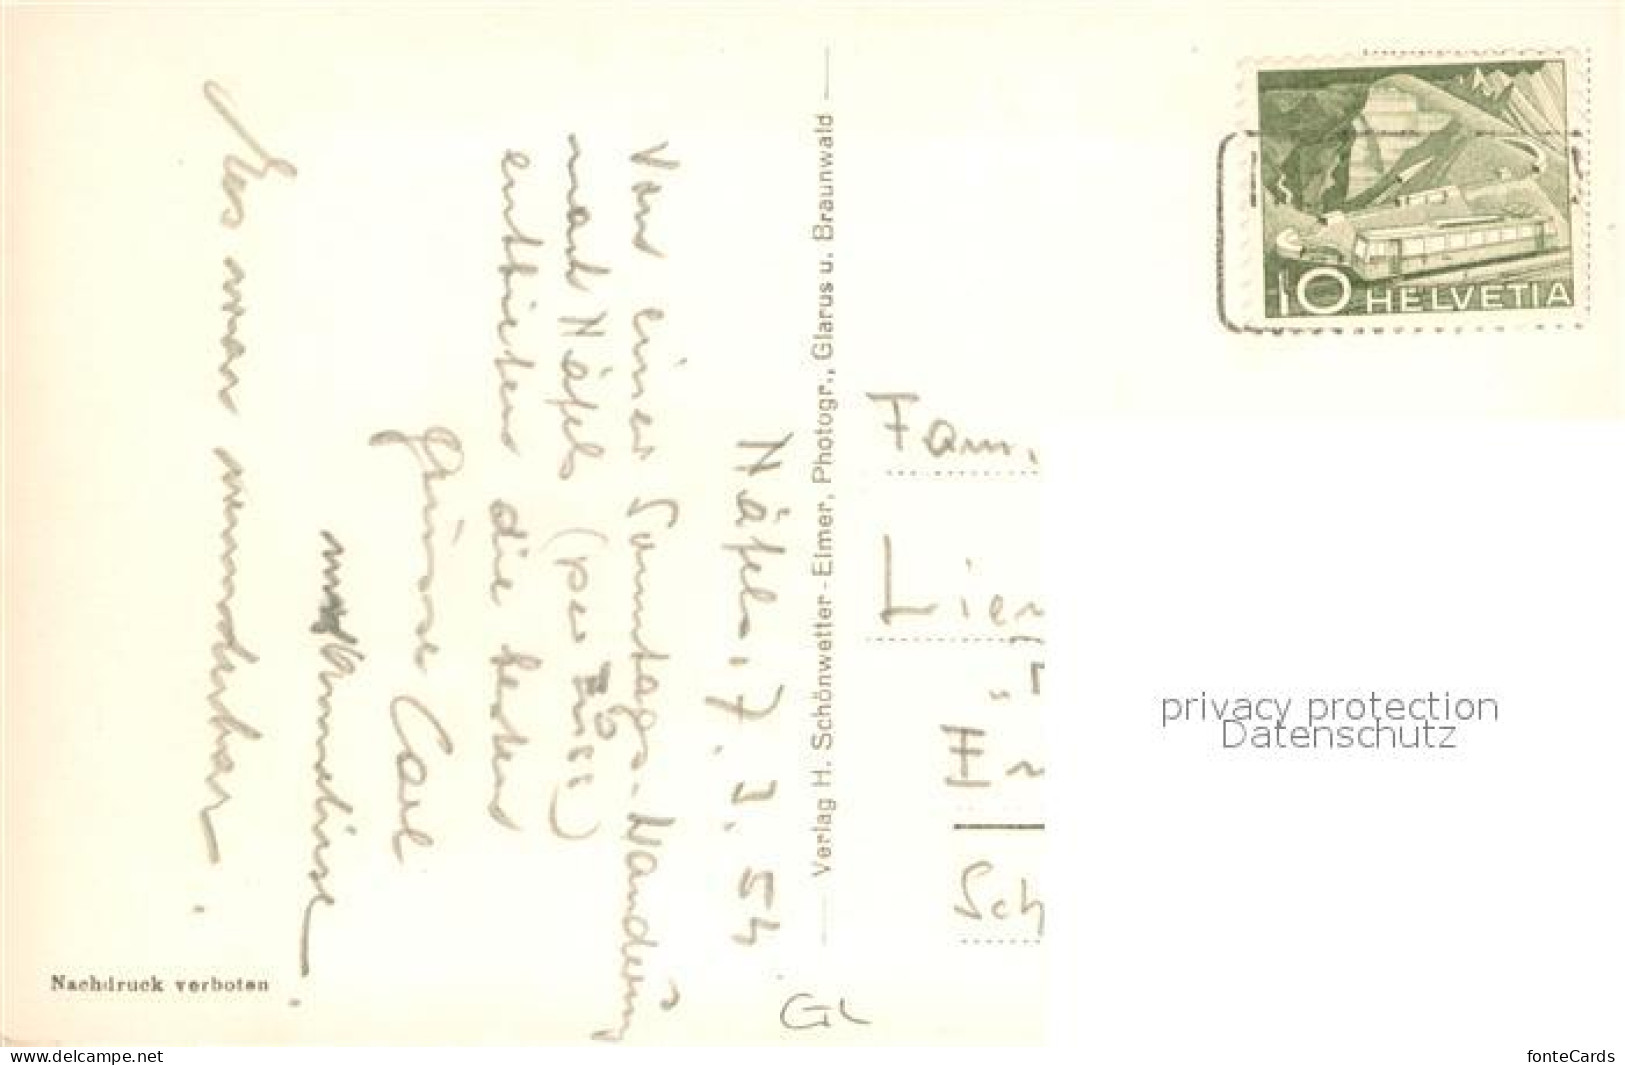 Näfels, 7. 3. 54
Von einer Sonntags-Wanderung
nach Näfels (per Füss)
entbieten die besten
Grüsse Carl
und Annelise.
Es war wunderbar.
Verlag H. Schönwetter-Elmer, Photogr., Glarus u. Braunwald
Nachdruck verboten
10 HELVETIA
Fam.
Lien
Sch
GL
privacy protection
Datenschutz
www.delcampe.net
fonteCards